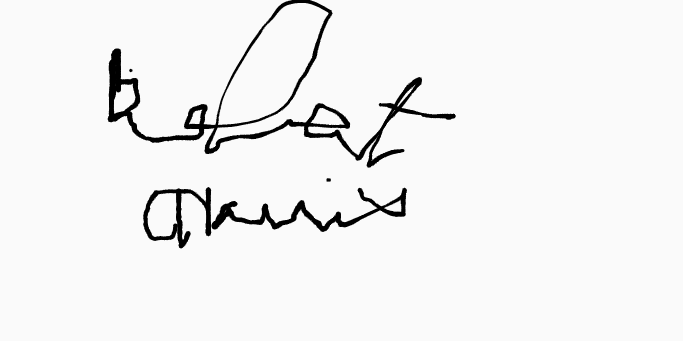 Robert
Harris